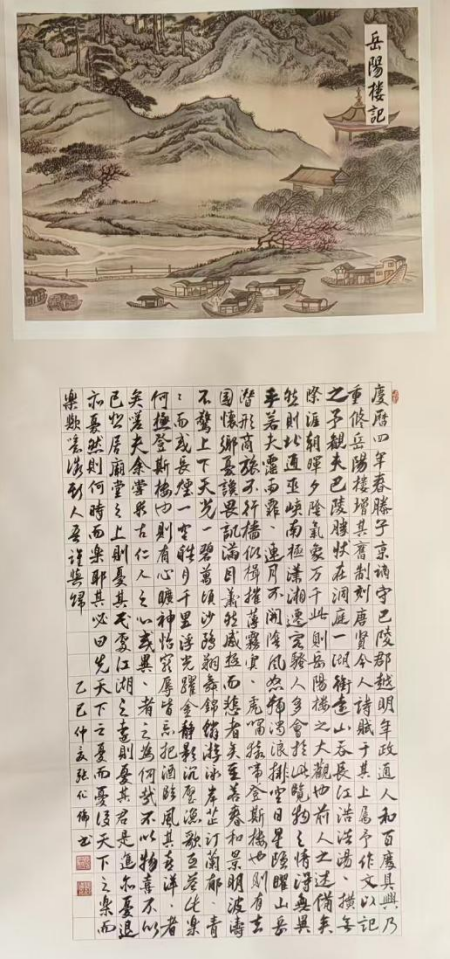 岳陽楼記
慶曆四年春滕子京謫守巴陵郡越明年政通人和百廢具興乃
重修岳陽樓增其舊制刻唐賢今人詩賦于其上屬予作文以記
之予觀夫巴陵勝狀在洞庭一湖銜遠山吞長江浩浩湯、橫無
際涯朝暉夕陰氣象万千此則岳陽樓之大觀也前人之述備矣
然則北通巫峽南極瀟湘遷客騷人多會於此覽物之情得無異
乎若夫霪雨霏、連月不開陰風怒號濁浪排空日星隱曜山岳
潛形商旅不行檣傾楫摧薄暮冥、虎嘯猿啼登斯樓也則有去
國懷鄉憂讒畏譏滿目蕭然感極而悲者矣至若春和景明波瀾
不驚上下天光一碧萬頃沙鷗翔集錦鱗游泳岸芷汀蘭郁、青
、而或長煙一空皓月千里浮光躍金靜影沉璧漁歌互答此樂
何極登斯樓也則有心曠神怡寵辱皆忘把酒臨風其喜洋、者
矣嗟夫余嘗求古仁人之心或異、者之為何哉不以物喜不以
己悲居廟堂之上則憂其民處江湖之遠則憂其君是進亦憂退
亦憂然則何時而樂耶其必曰先天下之憂而憂後天下之樂而
樂歟噫微斯人吾誰與歸
乙巳仲夏張 書